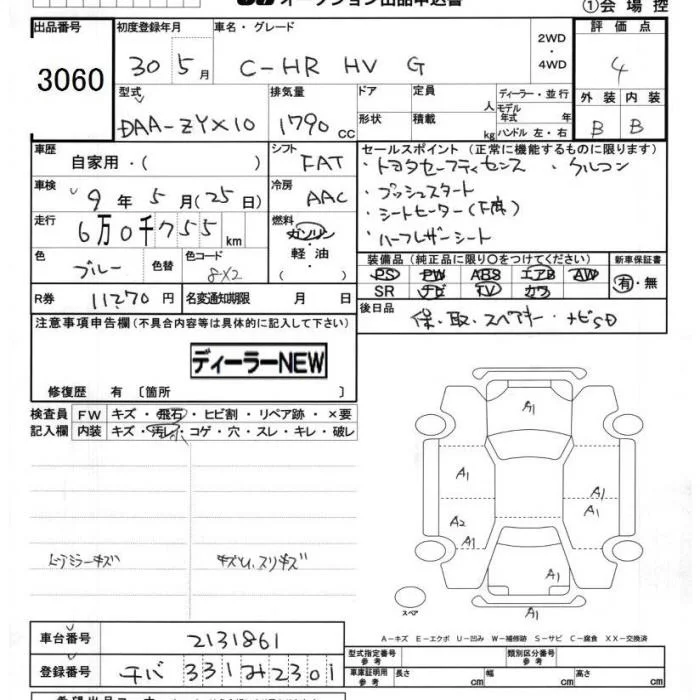 オークション出品申込書
①会場控
出品番号 初度登録年月 車名・グレード 評価点
3060 30 5月 C-HR HV G 2WD・4WD 4
型式 排気量 ドア 定員 ディーラー・並行 外装 内装
DAA-ZYX10 1790cc 形状 積載 人 kg モデル年式 年 ハンドル 左・右 B B
車歴 シフト セールスポイント(正常に機能するものに限ります)
自家用・( ) FAT ・トヨタセーフティセンス ・クルコン
車検 9年5月(25日) 冷房 AAC ・プッシュスタート
走行 6万0千755km 燃料 ・シートヒーター(F席)
ガソリン・軽油・( ) ・ハーフレザーシート
色 ブルー 色替 色コード 8X2
装備品(純正品に限り○をつけてください) 新車保証書
PS PW ABS エアB AW 有・無
SR ナビ TV カワ
R券 11270円 名変通知期限 月 日
後日品 保・取・スペアキー・ナビSD
注意事項申告欄(不具合内容等は具体的に記入して下さい)
ディーラーNEW
修復歴 有〔箇所 〕
検査員 FW キズ・飛石・ヒビ割・リペア跡・×要
記入欄 内装 キズ・汚レ・コゲ・穴・スレ・キレ・破レ
A1
A1 A1
A2 A1
A1
A1
A1
ドアミラーキズ キズ凹、スリキズ
スペア
車台番号 2131861
A-キズ E-エクボ U-凹み W-補修跡 S-サビ C-腐食 XX-交換済
型式指定番号 参考 類別区分番号 参考
登録番号 チバ 331 み 2301
車庫証明用 参考 長さ cm 幅 cm 高さ cm